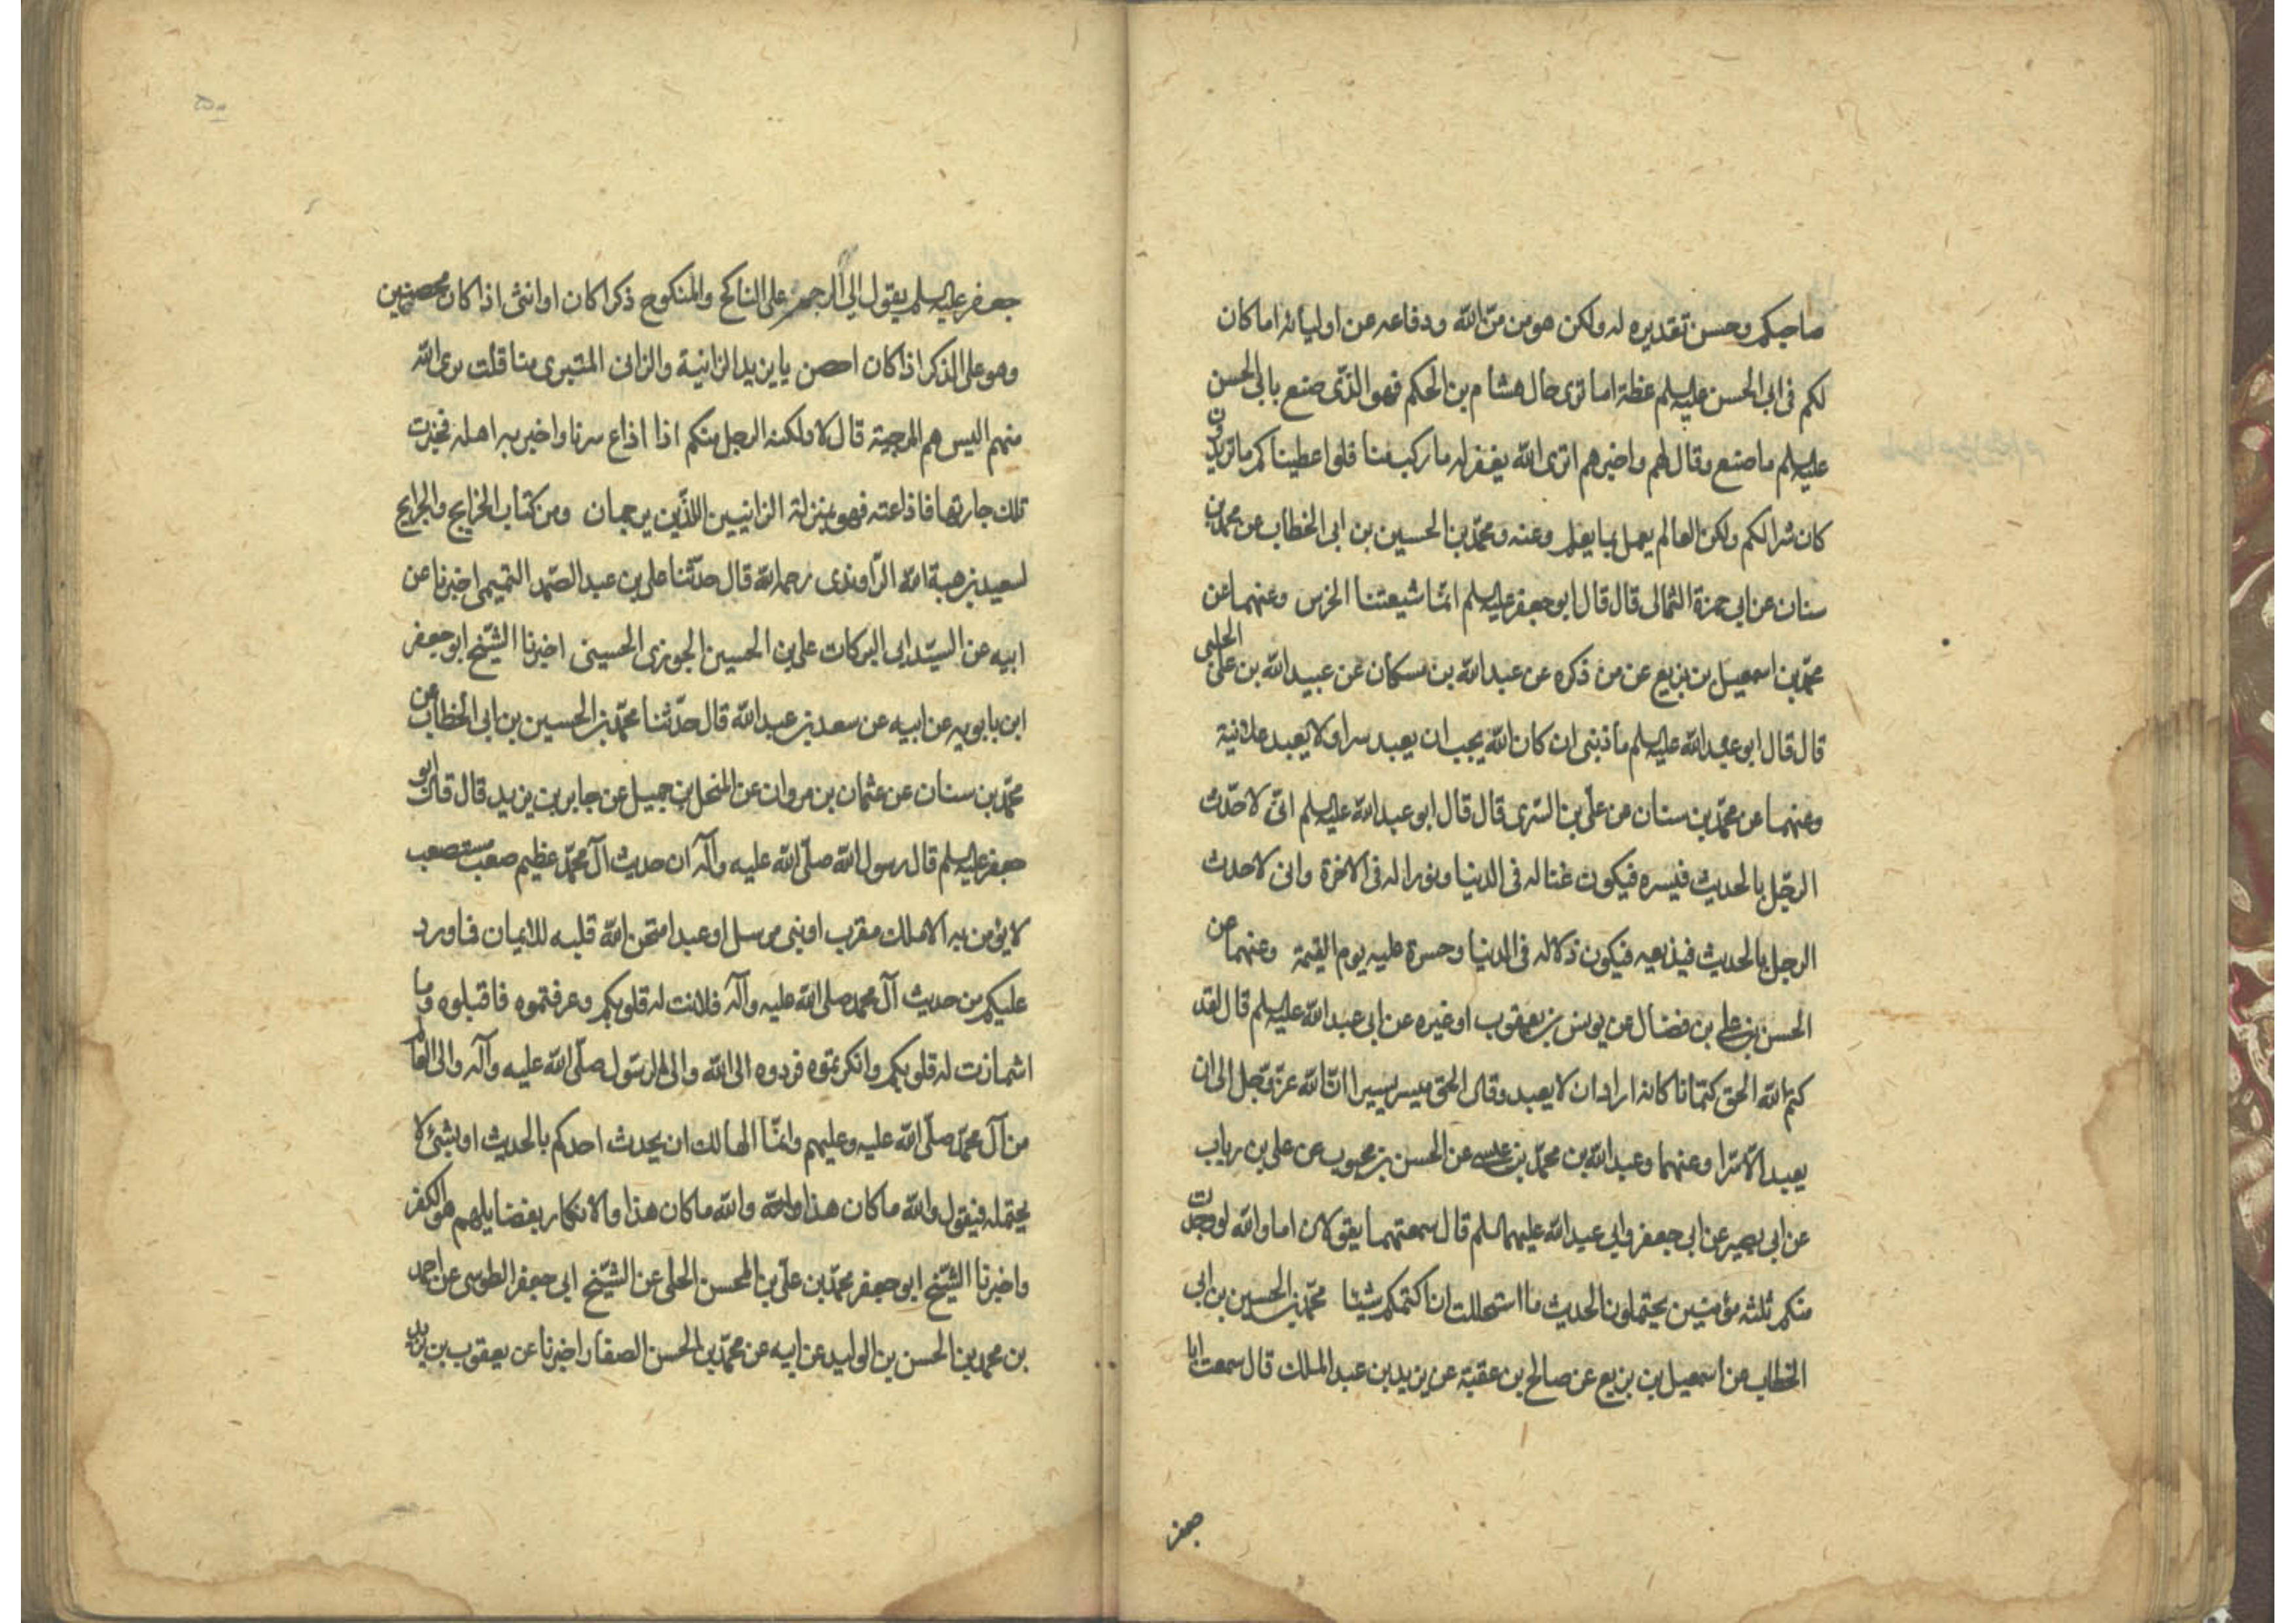 صاحبكم وحسن تقديره له ولكن هو من منّ الله ودفاعه عن اوليائه اما كان
لكم فى ابى الحسن عليه السلم عظة اما ترى حال هشام بن الحكم فهو الذى صنع بابى الحسن
عليه السلم ما صنع وقال لهم واخبرهم اترى الله يغفر له ما ركب منا فلو اعطيناكم ما تريدون
كان شرا لكم ولكن العالم يعمل بما يعلم وعنه ومحمد بن الحسين بن ابى الخطاب عن محمد بن
سنان عن ابى حمزة الثمالى قال قال ابو جعفر عليه السلم انما شيعتنا الخرس وعنهما عن
محمد بن اسمعيل بن بزيع عن من ذكره عن عبد الله بن مسكان عن عبيد الله بن على الحلبى
قال قال ابو عبد الله عليه السلم ما ذنبى ان كان الله يحب ان يعبد سرا ولا يعبد علانية
وعنهما عن محمد بن سنان عن على بن السرى قال قال ابو عبد الله عليه السلم انى لاحدّث
الرجل بالحديث فيسره فيكون غنا له فى الدنيا ونورا له فى الاخرة وانى لاحدث
الرجل بالحديث فيذيعه فيكون ذلا له فى الدنيا وحسرة عليه يوم القيمة وعنهما عن
الحسن بن على بن فضال عن يونس بن يعقوب او غيره عن ابى عبد الله عليه السلم قال لقد
كتم الله الحق كتمانا كانه اراد ان لا يعبد وقال الحق ميسر يسيرا ان الله عزّ وجل الى ان
يعبد الّا سرا وعنهما وعبد الله بن محمد بن عيسى عن الحسن بن محبوب عن على بن رياب
عن ابى بصير عن ابى جعفر وابى عبد الله عليهما السلم قال سمعتهما يقولان اما والله لو وجدت
منكم ثلثه مؤمنين يحتملون الحديث ما استحللت ان اكتمكم شيئا محمد بن الحسين بن ابى
الخطاب عن اسمعيل بن بزيع عن صالح بن عقبة عن يزيد بن عبد الملك قال سمعت ابا
جعفر
جعفر عليه السلم يقول الى الرجم على الناكح والمنكوح ذكرا كان او انثى اذا كان محصنين
وهو على الذكر اذا كان احصن يا يزيد الزانية والزانى المتبرى منا قلت برى الله
منهم اليس هم المرجئة قال لا ولكنه الرجل منكم اذا اذاع سرنا واخبر به اهله فخبرت
تلك جارتها فاذاعته فهو بمنزلة الزانيين اللذين يرجمان ومن كتاب الخرايج والجرايح
لسعيد بن هبة الله الراوندى رحمه الله قال حدثنا على بن عبد الصمد التميمى اخبرنا عن
ابيه عن السيد ابى البركات على بن الحسين الجوزى الحسينى اخبرنا الشيخ ابو جعفر
ابن بابويه عن ابيه عن سعد بن عبد الله قال حدّثنا محمد بن الحسين بن ابى الخطاب عن
محمد بن سنان عن عثمان بن مروان عن المنخل بن جميل عن جابر بن يزيد قال قال ابو
جعفر عليه السلم قال رسول الله صلى الله عليه وآله ان حديث آل محمد عظيم صعب مستصعب
لا يؤمن به الا ملك مقرب او نبى مرسل او عبد امتحن الله قلبه للايمان فما ورد
عليكم من حديث آل محمد صلى الله عليه وآله فلانت له قلوبكم وعرفتموه فاقبلوه وما
اشمازت له قلوبكم وانكرتموه فردوه الى الله والى الرسول صلى الله عليه وآله والى العالم
من آل محمد صلى الله عليه وعليهم وانما الهالك ان يحدث احدكم بالحديث او بشئ لا
يحتمله فيقول والله ما كان هذا والله والله ما كان هذا والانكار بفضايلهم هو الكفر
واخبرنا الشيخ ابو جعفر محمد بن على بن المحسن الحلى عن الشيخ ابى جعفر الطوسى عن احمد
بن محمد بن الحسن بن الوليد عن ابيه عن محمد بن الحسن الصفار اخبرنا عن يعقوب بن يزيد